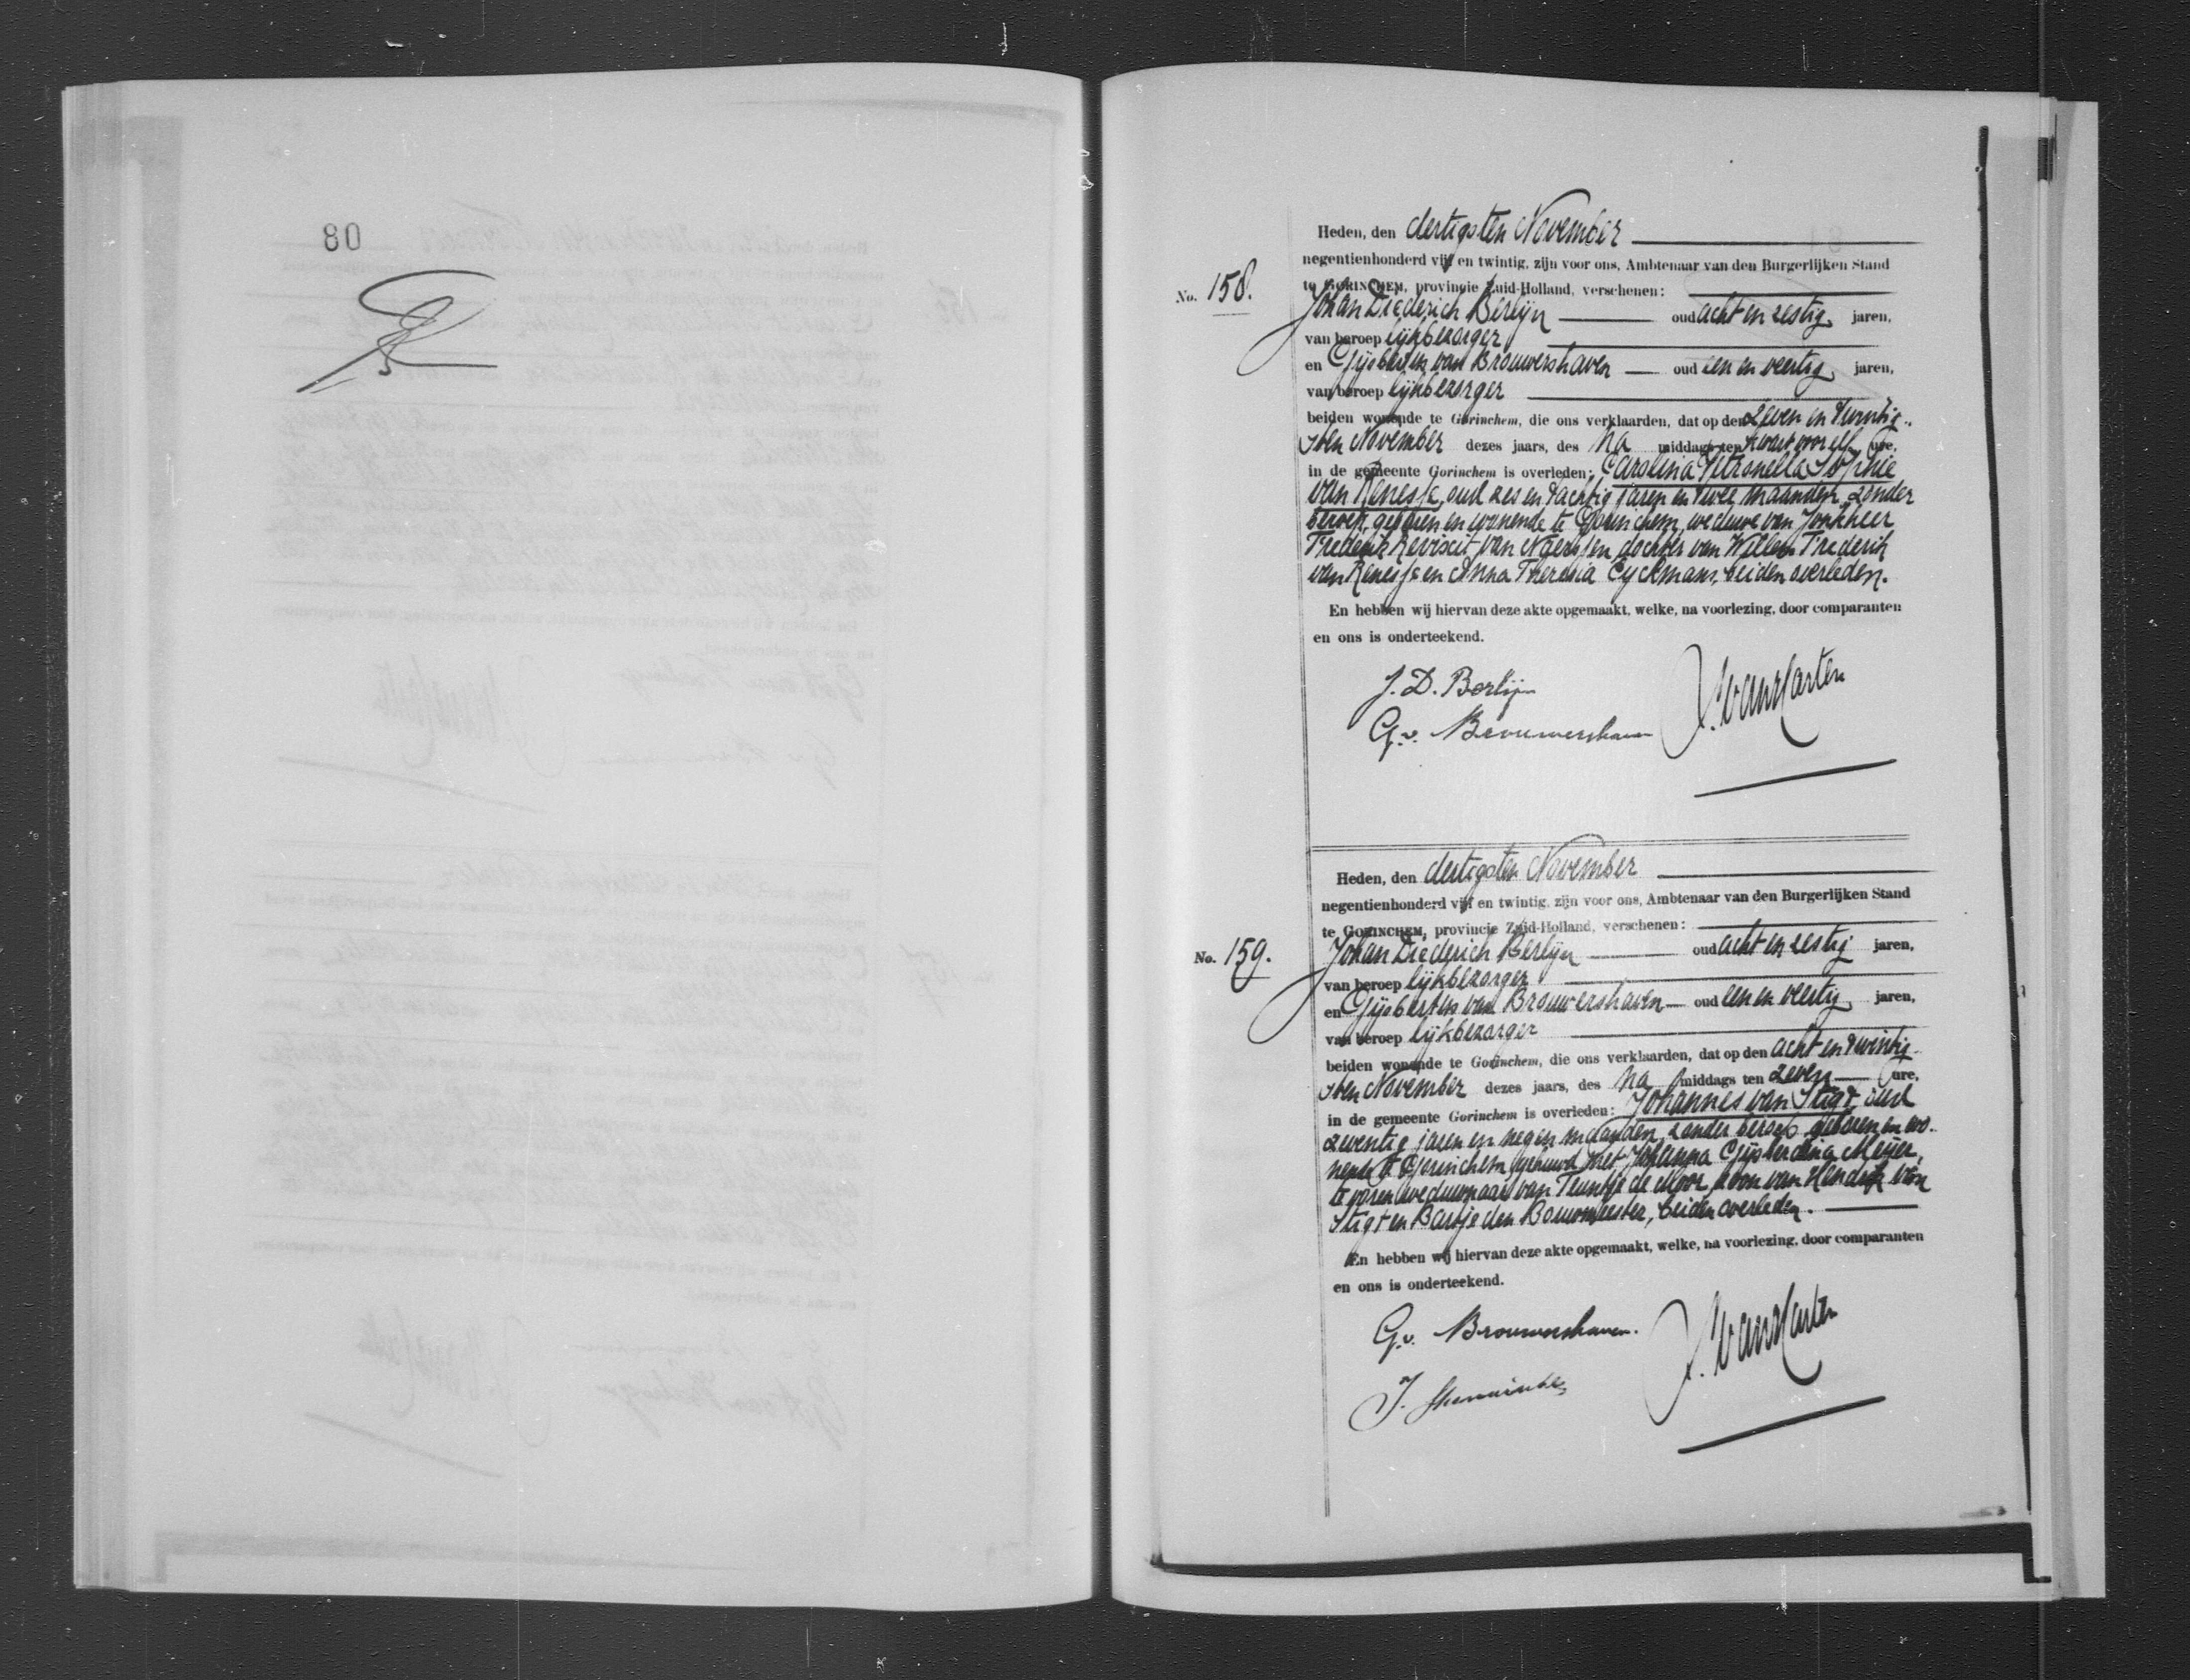 80
Heden, den dertigsten November
negentienhonderd vijf en twintig, zijn voor ons, Ambtenaar van den Burgerlijken Stand
No. 158.
te GORINCHEM, provincie Zuid-Holland, verschenen:
Johan Diederich Berlijn oud acht en zestig jaren,
van beroep lijkbezorger
en Gijsbertus van Brouwershaven oud een en veertig jaren,
van beroep lijkbezorger
beiden wonende te Gorinchem, die ons verklaarden, dat op den zeven en twintig-
sten November dezes jaars, des na middags ten kwart voor elf ure,
in de gemeente Gorinchem is overleden: Carolina Petronella Sophie
van Renesse, oud zes en tachtig jaren en twee maanden, zonder
beroep, geboren en wonende te Gorinchem, weduwe van Jonkheer
Frederik Revixit van Naerssen, dochter van Willem Frederik
van Renesse en Anna Theresia Eyckmans, beiden overleden.
En hebben wij hiervan deze akte opgemaakt, welke, na voorlezing, door comparanten
en ons is onderteekend.
J. D. Berlijn
G. v. Brouwershaven
Heden, den dertigsten November
negentienhonderd vijf en twintig, zijn voor ons, Ambtenaar van den Burgerlijken Stand
te GORINCHEM, provincie Zuid-Holland, verschenen:
No. 159.
Johan Diederich Berlijn oud acht en zestig jaren,
van beroep lijkbezorger
en Gijsbertus van Brouwershaven oud een en veertig jaren,
van beroep lijkbezorger
beiden wonende te Gorinchem, die ons verklaarden, dat op den acht en twintig-
sten November dezes jaars, des na middags ten zeven ure,
in de gemeente Gorinchem is overleden: Johannes van Stigt, oud
zeventig jaren en negen maanden, zonder beroep, geboren en wo-
nende te Gorinchem, gehuwd met Johanna Gijsberdina Meijer,
te voren weduwnaar van Teuntje de Moor, zoon van Hendrik van
Stigt en Bartje den Bouwmeester, beiden overleden.
En hebben wij hiervan deze akte opgemaakt, welke, na voorlezing, door comparanten
en ons is onderteekend.
G. v. Brouwershaven.